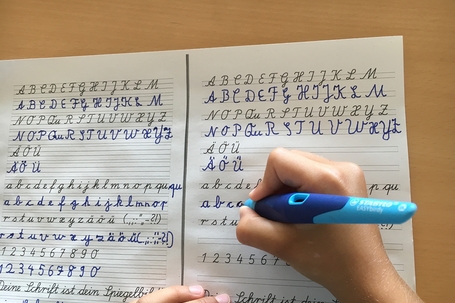 A B C D E F G H I J K L M
A B C D E F G H I J K L M
N O P Qu R S T U V W X Y Z
N O P Qu R S T U V W X Y Z
Ä Ö Ü
Ä Ö Ü
a b c d e f g h i j k l m n o p qu
a b c d e f g h i j k l m n o p
r s t u v w x y z ä ö ü
r s t u v w x y z ä ö ü
1 2 3 4 5 6 7 8 9 0
1 2 3 4 5 6 7 8 9 0
Deine Schrift ist dein Spiegelbild
A B C D E F G H I J K L M
A B C D E F G H I J K L M
N O P Qu R S T U V W X Y Z
N O P Qu R S T U V W X Y Z
Ä Ö Ü
Ä Ö Ü
a b c d e
a b c
r s t u
1 2 3 4 5 6 7
Deine Schrift ist dein
STABILO
EASYbirdy